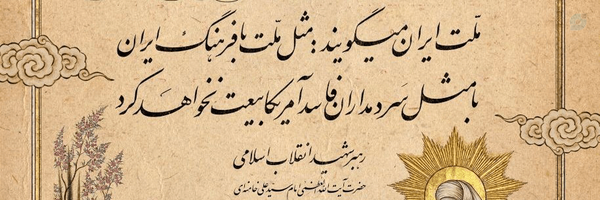 ملّت ایران میگویند: مثل ملّت با فرهنگ ایران
با مثل سردمداران فاسد آمریکا بیعت نخواهد کرد
رهبر شهید انقلاب اسلامی
حضرت آیت الله العظمی امام سید علی خامنه‌ای